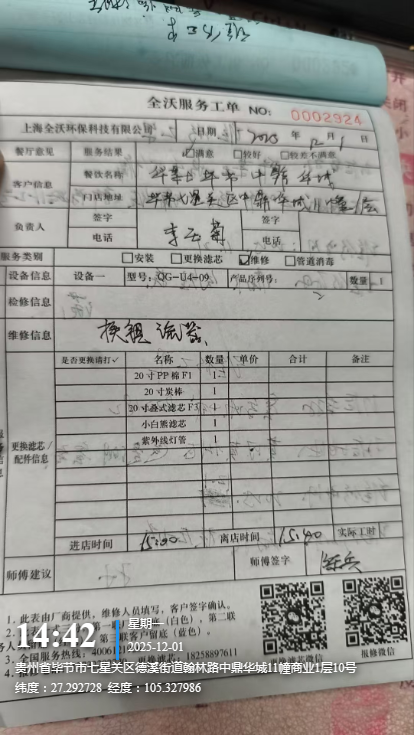 全沃服务工单 NO: 0002924
上海全沃环保科技有限公司 日期 2025 年 12 月 1 日
餐厅意见 服务结果 满意 较好 较差不满意
客户信息 餐饮名称 华莱士 毕节 中鼎华城
门店地址 毕节七星关区中鼎华城11幢1层
负责人 签字 签字
电话 电话
服务类别 安装 更换滤芯 维修 管道消毒
设备信息 设备一 型号: QG-U4-09 产品序列号: 数量 1
检修信息
维修信息 换粗滤芯
更换滤芯/配件信息 是否更换请打✓ 名称 数量 单价 合计 备注
20寸PP棉F1 1
20寸炭棒 1
20寸叠式滤芯F3 1
小白熊滤芯 1
紫外线灯管 1
进店时间 15:00 离店时间 15:40 实际工时
师傅建议 师傅签字
1. 此表由厂商提供,维修人员填写,客户签字确认。
(白色),第二联
客户留底(蓝色)。
3. 全国服务热线: 4006
18258897611
报修微信
14:42
星期一
2025-12-01
贵州省毕节市七星关区德溪街道翰林路中鼎华城11幢商业1层10号
纬度:27.292728 经度:105.327986